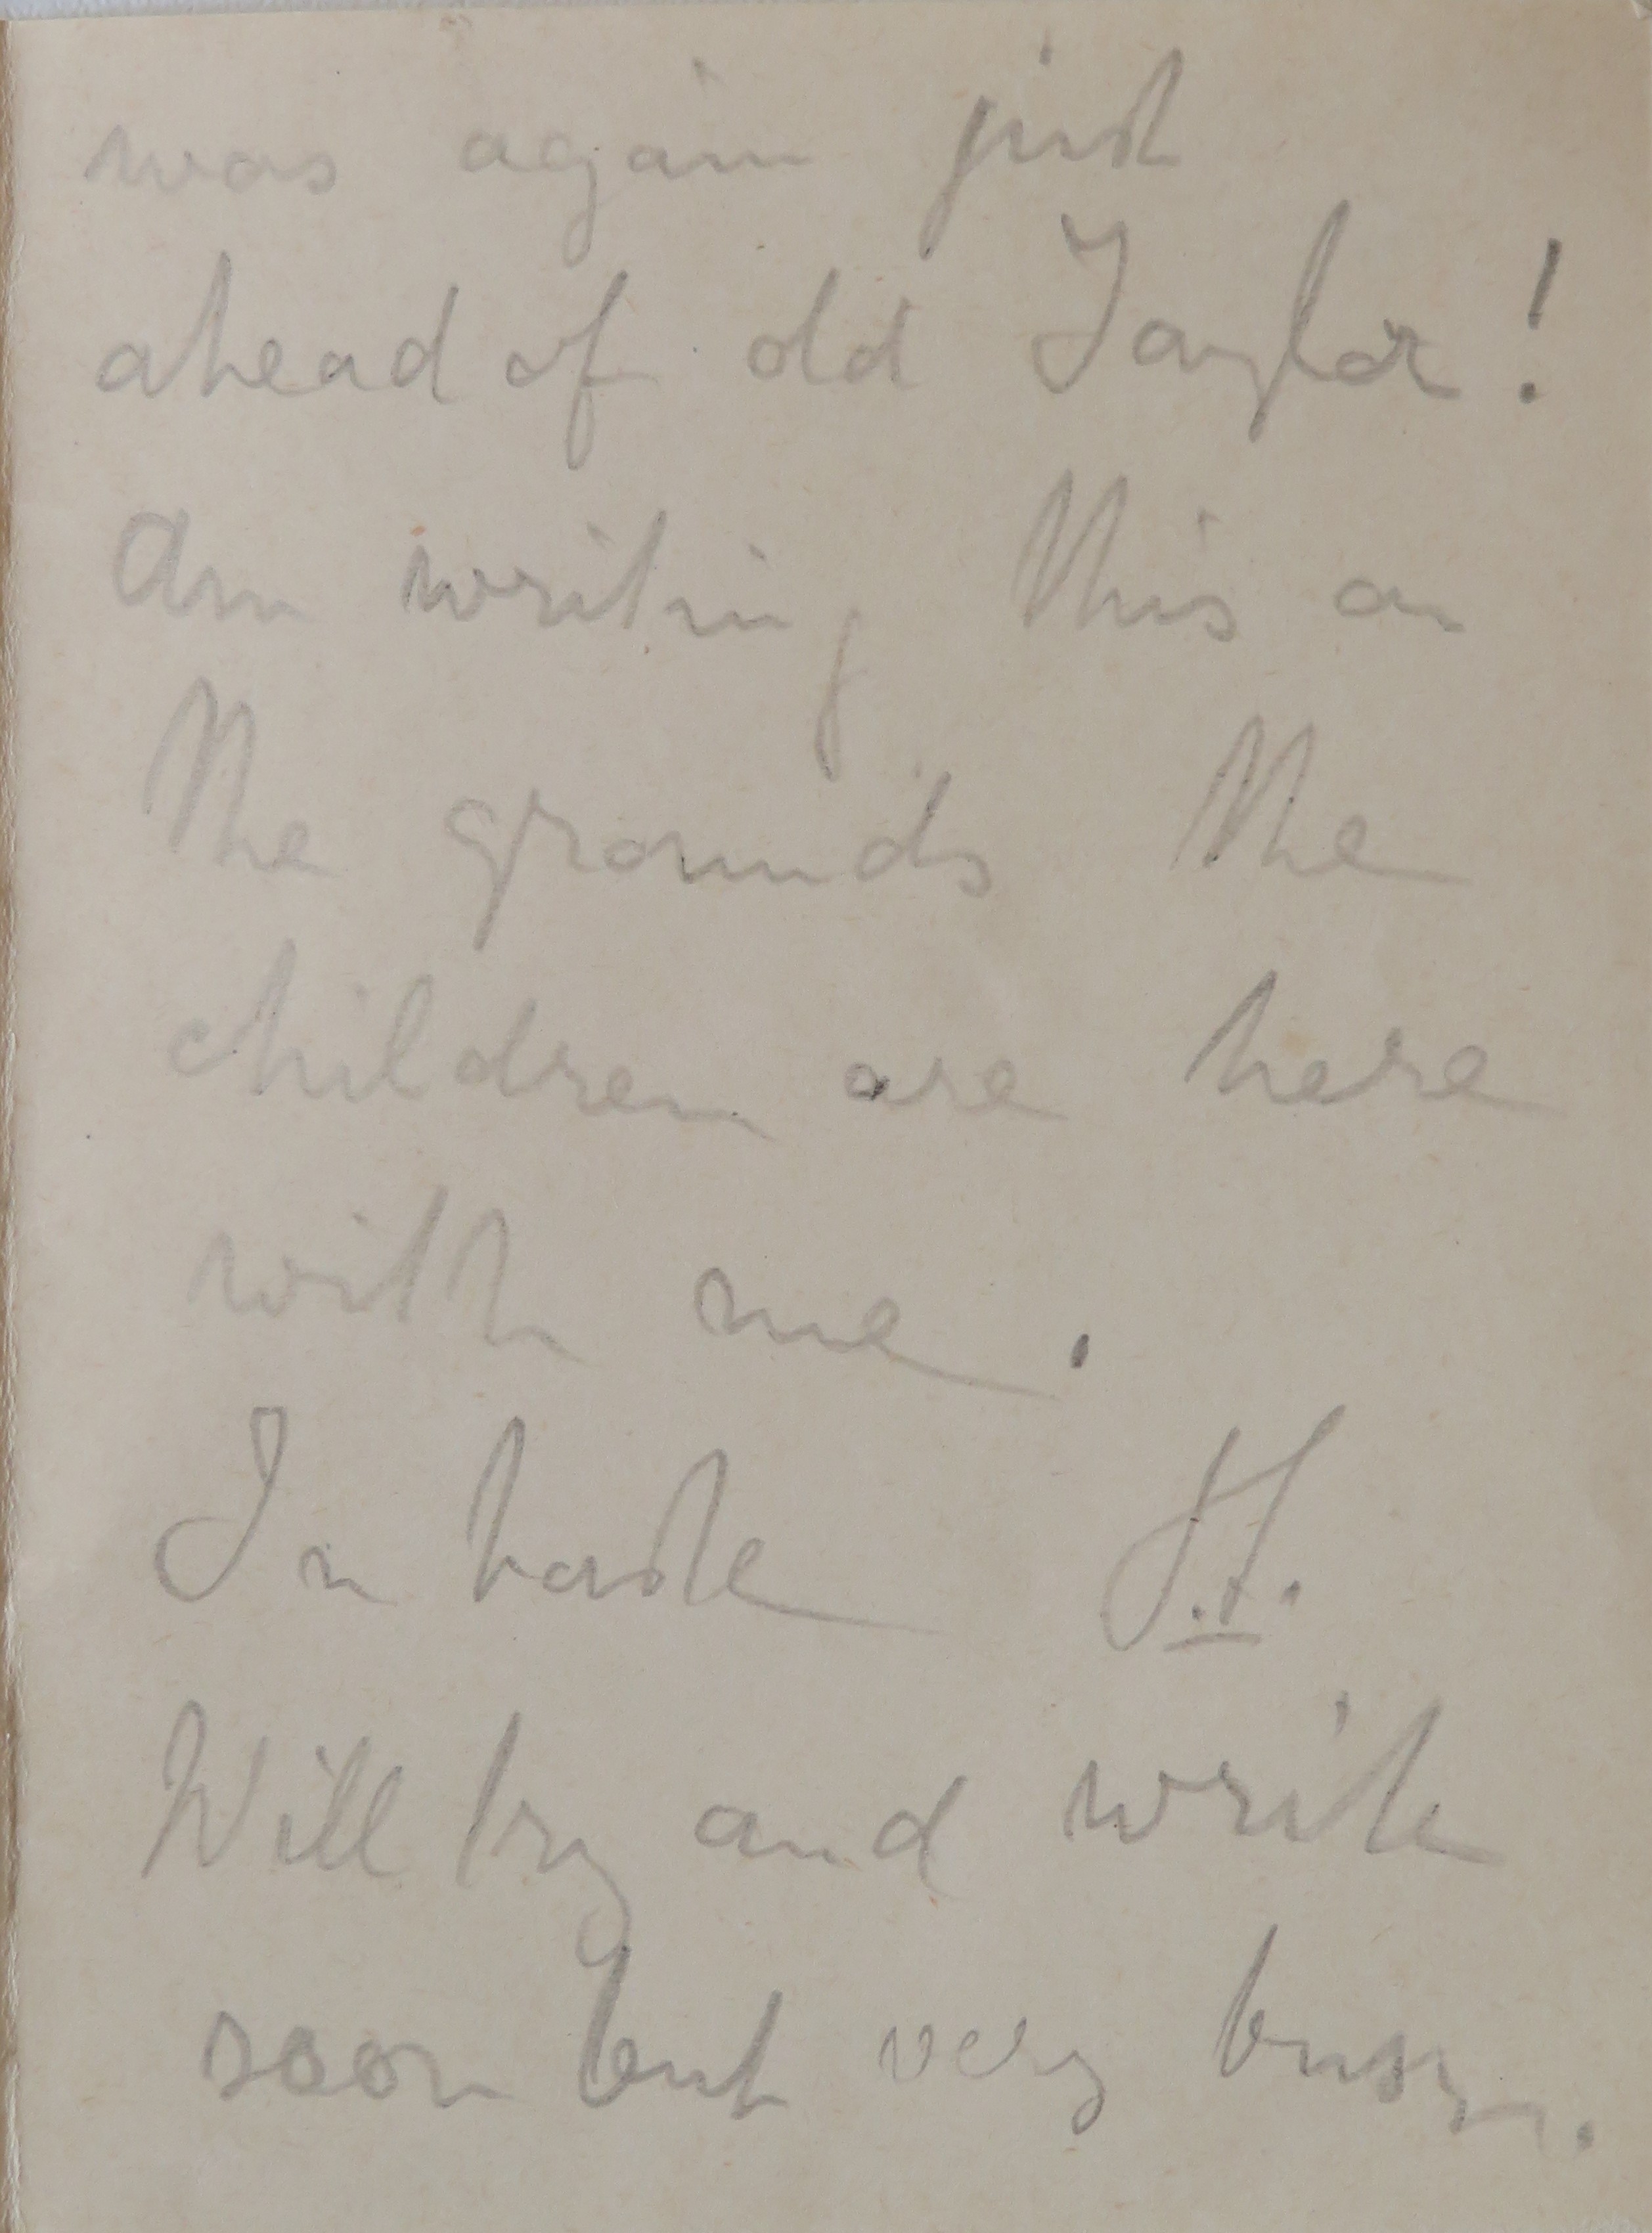 was again just
ahead of old Taylor!
Am writing this on
the grounds the
children are here
with me.
In haste H.
Will try and write
soon but very busy.